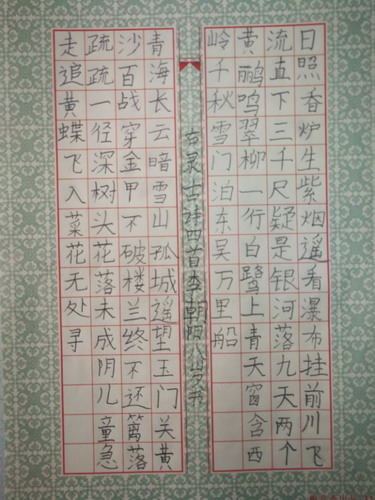 日照香炉生紫烟遥看瀑布挂前川飞
流直下三千尺疑是银河落九天两个
黄鹂鸣翠柳一行白鹭上青天窗含西
岭千秋雪门泊东吴万里船
右录古诗四首李朝阳八岁书
青海长云暗雪山孤城遥望玉门关黄
沙百战穿金甲不破楼兰终不还篱落
疏疏一径深树头花落未成阴儿童急
走追黄蝶飞入菜花无处寻